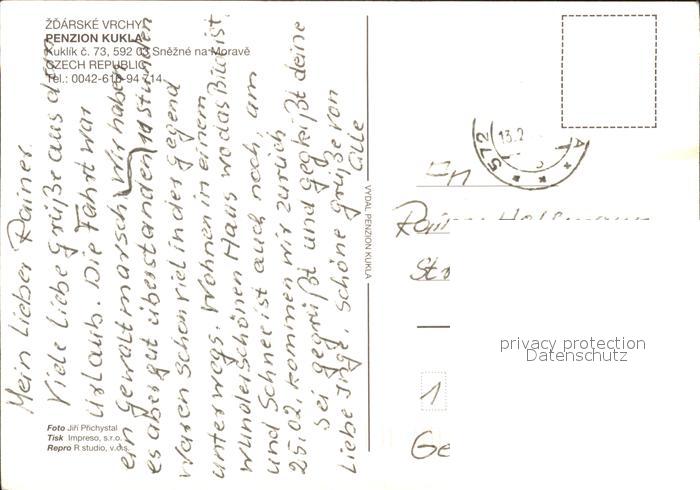 ŽĎÁRSKÉ VRCHY
PENZION KUKLA
Kuklík č. 73, 592 03 Sněžné na Moravě
CZECH REPUBLIC
Tel.: 0042-616-94 714
Mein Lieber Rainer.
Viele liebe Grüße aus dem
Urlaub. Die Fahrt war
ein Gewaltmarsch wir haben
es aber gut überstanden 14 stunden
Waren schon viel in der gegend
unterwegs. Wohnen in einem
wunderschönen Haus wo das Bild ist
und Schnee ist auch noch, am
25.02. kommen wir zurück
Sei gegrüßt und gegrüßt deine
Liebe Inge. Schöne grüße von
Foto Jiří Přichystal
Tisk Impreso, s.r.o.
Repro R studio, v.o.s.
VYDAL PENZION KUKLA
572
13.2
A
An
Str
1
Ge
privacy protection
Datenschutz